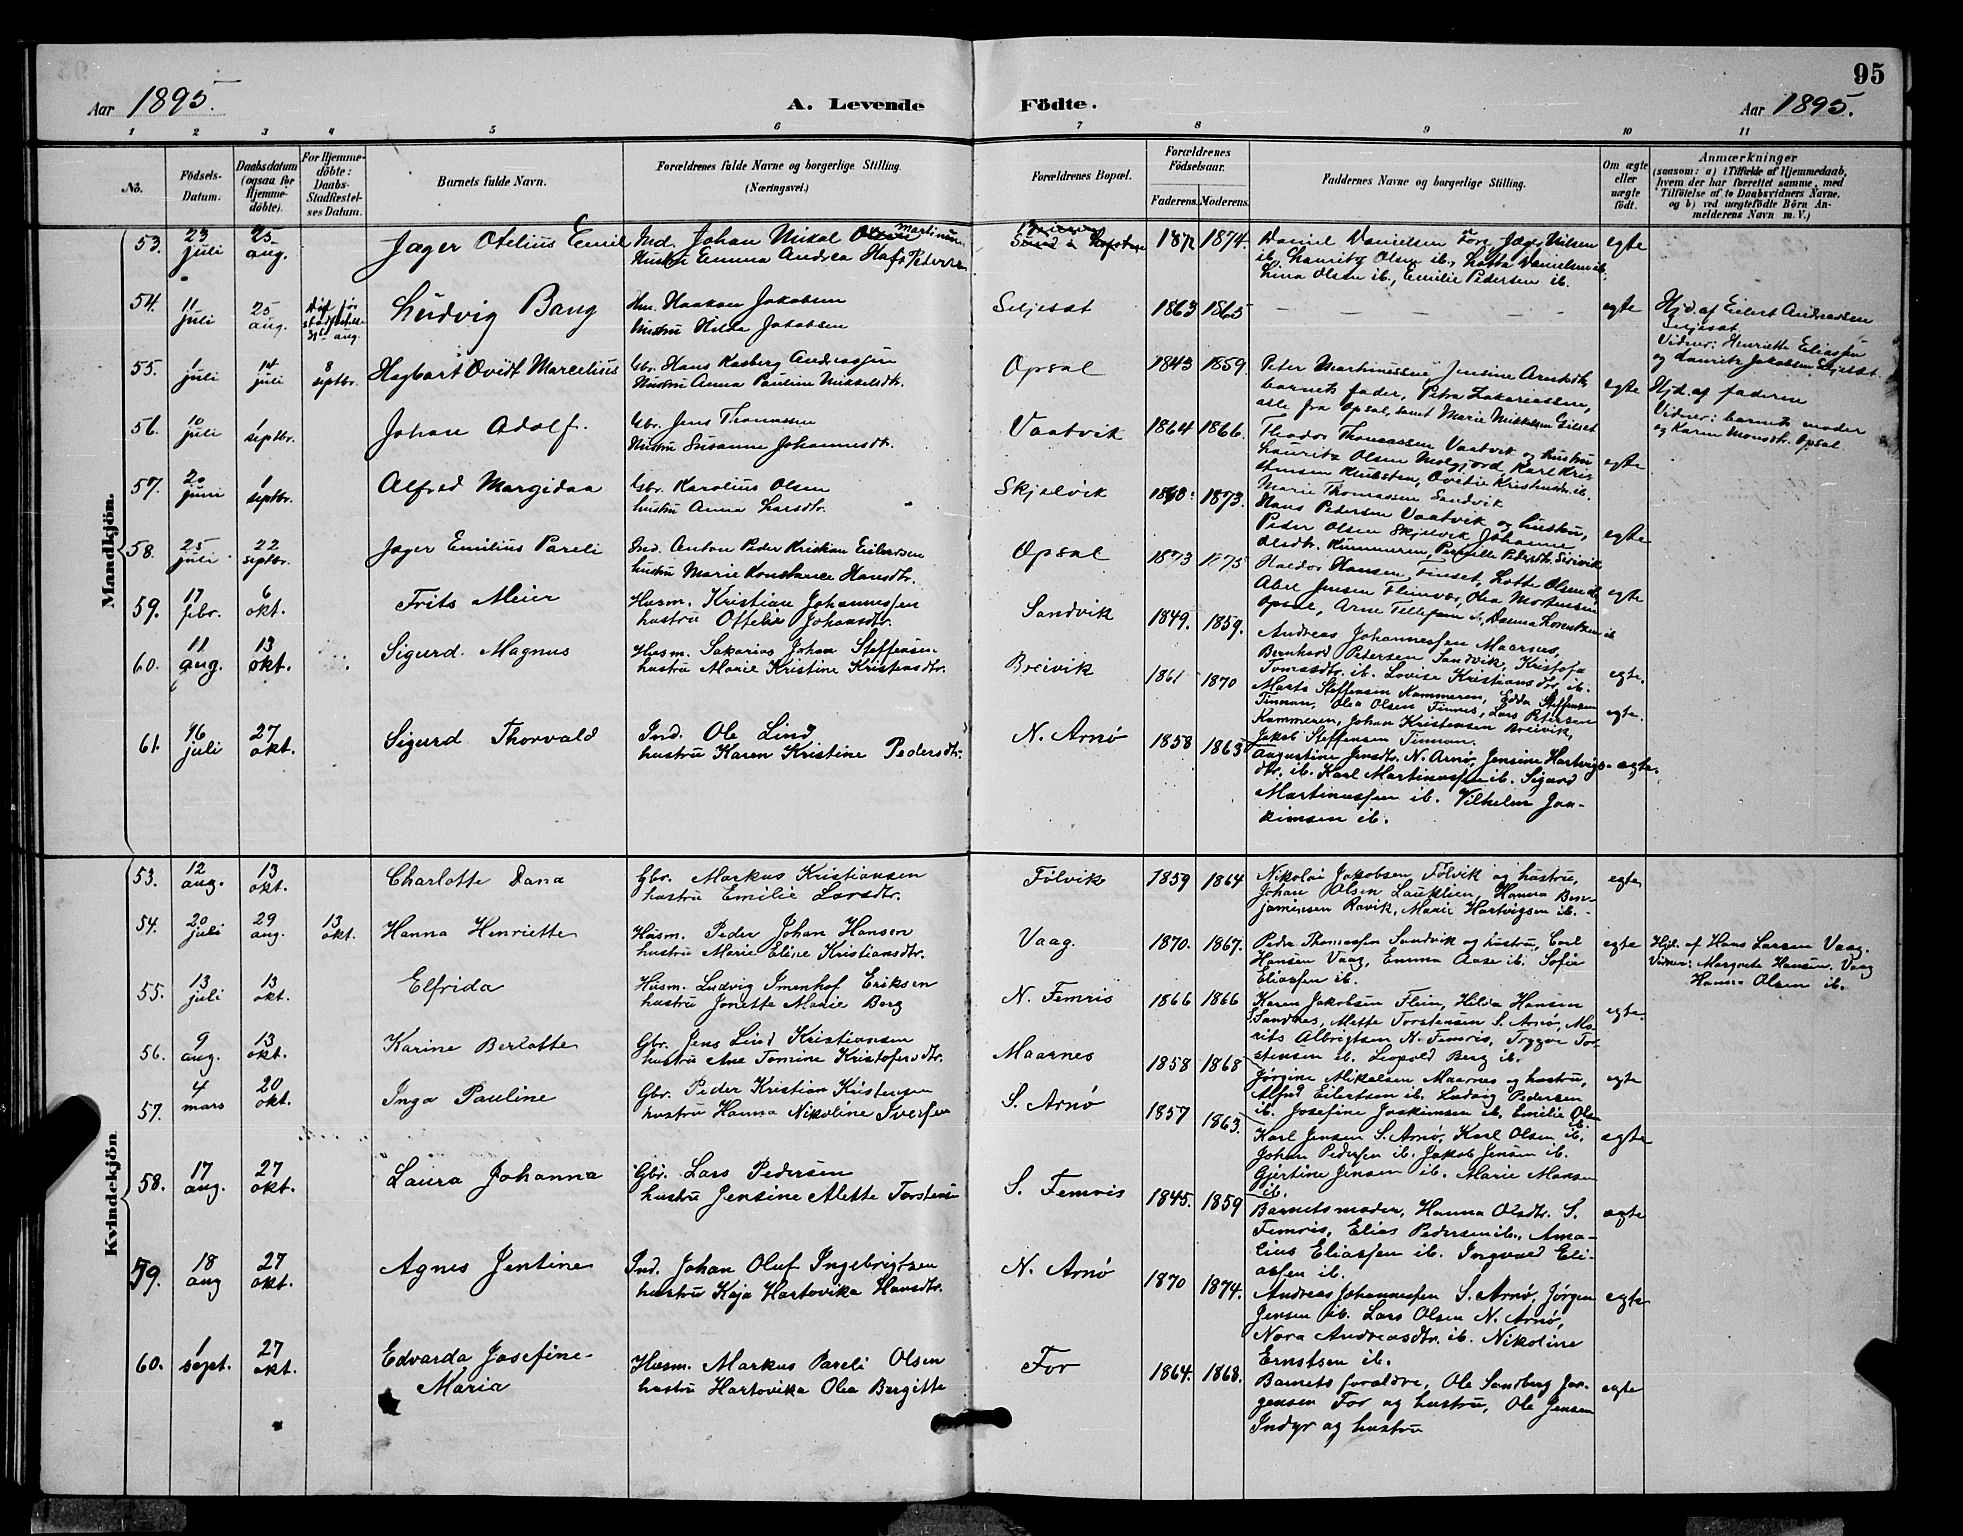 95
Aar 1895.
A. Levende Födte.
Aar 1895.
1 2 3 4 5 6 7 8 9 10 11
No.
Födsels-Datum.
Daabsdatum (ogsaa for Hjemme-döbte).
For Hjemme-döbte: Daabs-Stadfæstel-ses Datum.
Barnets fulde Navn.
Forældrenes fulde Navne og borgerlige Stilling. (Næringsvei.)
Forældrenes Bopæl.
Forældrenes Födselsaar.
Faderens. Moderens.
Faddernes Navne og borgerlige Stilling.
Om ægte eller uægte födt.
Anmærkninger
(saasom: a) i Tilfælde af Hjemmedaab, hvem der har forrettet samme, med Tilföielse af to Daabsvidners Navne. og b) ved uægtefödte Börn An-melderens Navn m. V.)
Mandkjön.
53. 23 juli 25 aug. Jager Otelius Emil
Ind. Johan Nikal Olsen Martinus
Hustru Emma Andrea Peders
1874. Daniel Danielsen Fore, Jæger Nilsen
ib, Lauritz Olsen ib., Lotta Danielsen ib.
Lina Olsen ib., Emilie Pedersen ib.
egte
54. 11 juli 25 aug. 31te aug. Ludvig Bang
Hm. Haakon Jakobsen
Hustru Hilda Jakobsen
Seljeset 1863 1865 — — — — egte
Hjd. af Eilert Andreassen
Seljeset
Vidner: Henriette Eliassen
og Lauritz Jakobsen Seljeset.
55. 1 juli 14 juli 8 septbr. Hagbart Ovidt Marcelius
Gbr. Hans Kasberg Andreassen
Hustru Anna Pauline Mikkelsdtr.
Opsal 1843 1859. Peter Martinussen, Jensine Arntsdtr,
barnets fader, Petra Zakariassen,
alle fra Opsal, samt Marie Mikkelsen Gilset
egte
Hjd. af faderen
Vidner: barnets moder
og Karen Monsdtr. Opsal
56. 10 juli 1 septbr. Johan Adolf.
Gbr. Jens Thomassen
Hustru Susanne Johannesdtr.
Vaatvik 1864 1866. Theodor Thomassen Vaatvik og hustru
Lauritz Olsen Melgjord, Karl Kris-
tensen Klubsten, Ovedie Kristensdtr. ib.
Marie Thomassen Sandvik
egte
57. 20 juni 1 septbr. Alfred Margidaa
Gbr. Karolius Olsen
hustru Anna Larsdtr.
Skjelvik 1873. Hans Pedersen Vaatvik og hustru,
Peder Olsen Skjelvik, Johanne
Olsdtr. Kummeren, Pernille Pedersdtr.
egte
58. 25 juli 22 septbr. Jager Emilius Pareli
Ind. Anton Peder Kristian Eilertsen
hustru Marie Konstance Hansdtr.
Opsal 1873 1875 Haldor Hansen Finset, Lotte Olsen ib,
Abel Jensen Fleinvær, Olea Mortensen
Opsal, Arne Tellefsen ib, Danna Lorentzen ib
egte
59. 17 febr. 6 okt. Frits Meier
Husm. Kristian Johannessen
hustru Ottelie Johansdtr.
Sandvik 1849. 1859. Andreas Johannessen Maarnes,
Bernhard Pedersen Sandvik, Kristofa
Tomasdtr. ib. Lovise Kristiansdtr. ib.
60. 11 aug. 13 okt. Sigurd Magnus
Husm. Sakarias Johan Steffensen
hustru Marie Kristine Kristensdtr.
Breivik 1861 1870 Marts Steffensen Kammeren, Edda Steffensen
Finnan, Olea Olsen Finnes, Lars Petersen
Kammeren, Johan Kristensen Breivik,
Jakob Steffensen Finnan.
egte.
egte.
61. 16 juli 27 okt. Sigurd Thorvald
Ind. Ole Lind
hustru Karen Kristine Pedersdtr.
N. Arnø 1858 1863 Augustine Jensdtr. N. Arnø, Jensine Hartvigs-
dtr. ib. Karl Martinussen ib. Sigurd
Martinussen ib. Vilhelm Joa-
kimsen ib.
egte.
Kvindekjön
53. 12 aug. 13 okt. Charlotte Dana
Gbr. Markus Kristiansen
hustru Emilie Larsdtr.
Følvik 1859 1864 Nikolai Jakobsen Følvik og hustru,
Johan Olsen Lauklien, Hanna Ben-
jaminsen Ravik, Marie Hartvigsen ib.
egte
54. 20 juli 29 aug. 13 okt. Hanna Henriette
Husm. Peder Johan Hansen
hustru Marie Eline Kristiansdtr.
Vaag. 1870. 1867. Peder Thomassen Sandvik og hustru, Carl
Hansen Vaag, Emma Aase ib. Sofie
Eliassen ib.
egte
Hjd. af Hans Larsen Vaag.
Vidner: Margrete Hansen. Vaag
Hanna Olsen ib.
55. 13 juli 13 okt. Elfrida
Husm. Ludvig Imenhof Eriksen
hustru Jonette Marie Berg
N. Femris 1866 1866 Karen Jakobsen Flein, Hilda Hansen
S. Sandnes, Mette Torstensen S. Arnø, Ma-
rits Albrigtsen N. Femris, Trygve Tor-
stensen ib. Leopold Berg ib.
egte.
56. 9 aug. 13 okt. Karine Berlotte
Gbr. Jens Lind Kristiansen
hustru Ane Tomine Kristofersdtr.
Maarnes 1858 1868 Jørgine Mikalsen Maarnes og hustru,
Alfred Eilertsen ib. Ludvig Pedersen
ib. Josefine Joakimsen ib. Emilie Ols-
ib.
egte
57. 4 mars 20 okt. Inga Pauline
Gbr. Peder Kristian Kristensen
hustru Hanna Nikoline Iversen
S. Arnø 1857 1863. Karl Jensen S. Arnø, Karl Olsen ib,
Johan Pedersen ib. Jakob Jensen ib.
Gjertine Jensen ib. Marie Monsen
ib.
egte
58. 17 aug. 27 okt. Laura Johanna
Gbr. Lars Pedersen
hustru Jensine Mette Torstensen
S. Femris 1845. 1859 Barnets moder, Hanna Olsdtr. S.
Femris, Elias Pedersen ib., Ama-
lius Eliassen ib. Ingvald Eli-
assen ib.
egte
59. 18 aug 27 okt. Agnes Jentine
Ind. Johan Oluf Ingebrigtsen
hustru Kaja Hartovika Hansdtr.
N. Arnø 1870 1874. Andreas Johannessen S. Arnø, Jørgen
Jensen ib. Lars Olsen N. Arnø,
Nora Andreasdtr. ib. Nikoline
Ernstsen ib.
egte
60. 1 sept. 27 okt. Edvarda Josefine-
Maria
Husm. Markus Pareli Olsen
hustru Hartovika Olea Bergitte
For 1864. 1868. Barnets forældre, Ole Sandberg Jør-
gensen For og hustru, Ole Jensen
Indyr og hustru
egte